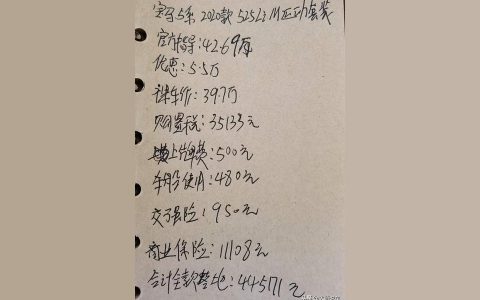 宝马5系 2020款 525Li M运动套装
官方指导:42.69万
优惠:5.5万
裸车价:39.7万
购置税:35133元
上牌费:500元
车船使用:480元
交强险:950元
商业保险:11108元
合计全款落地:44571元